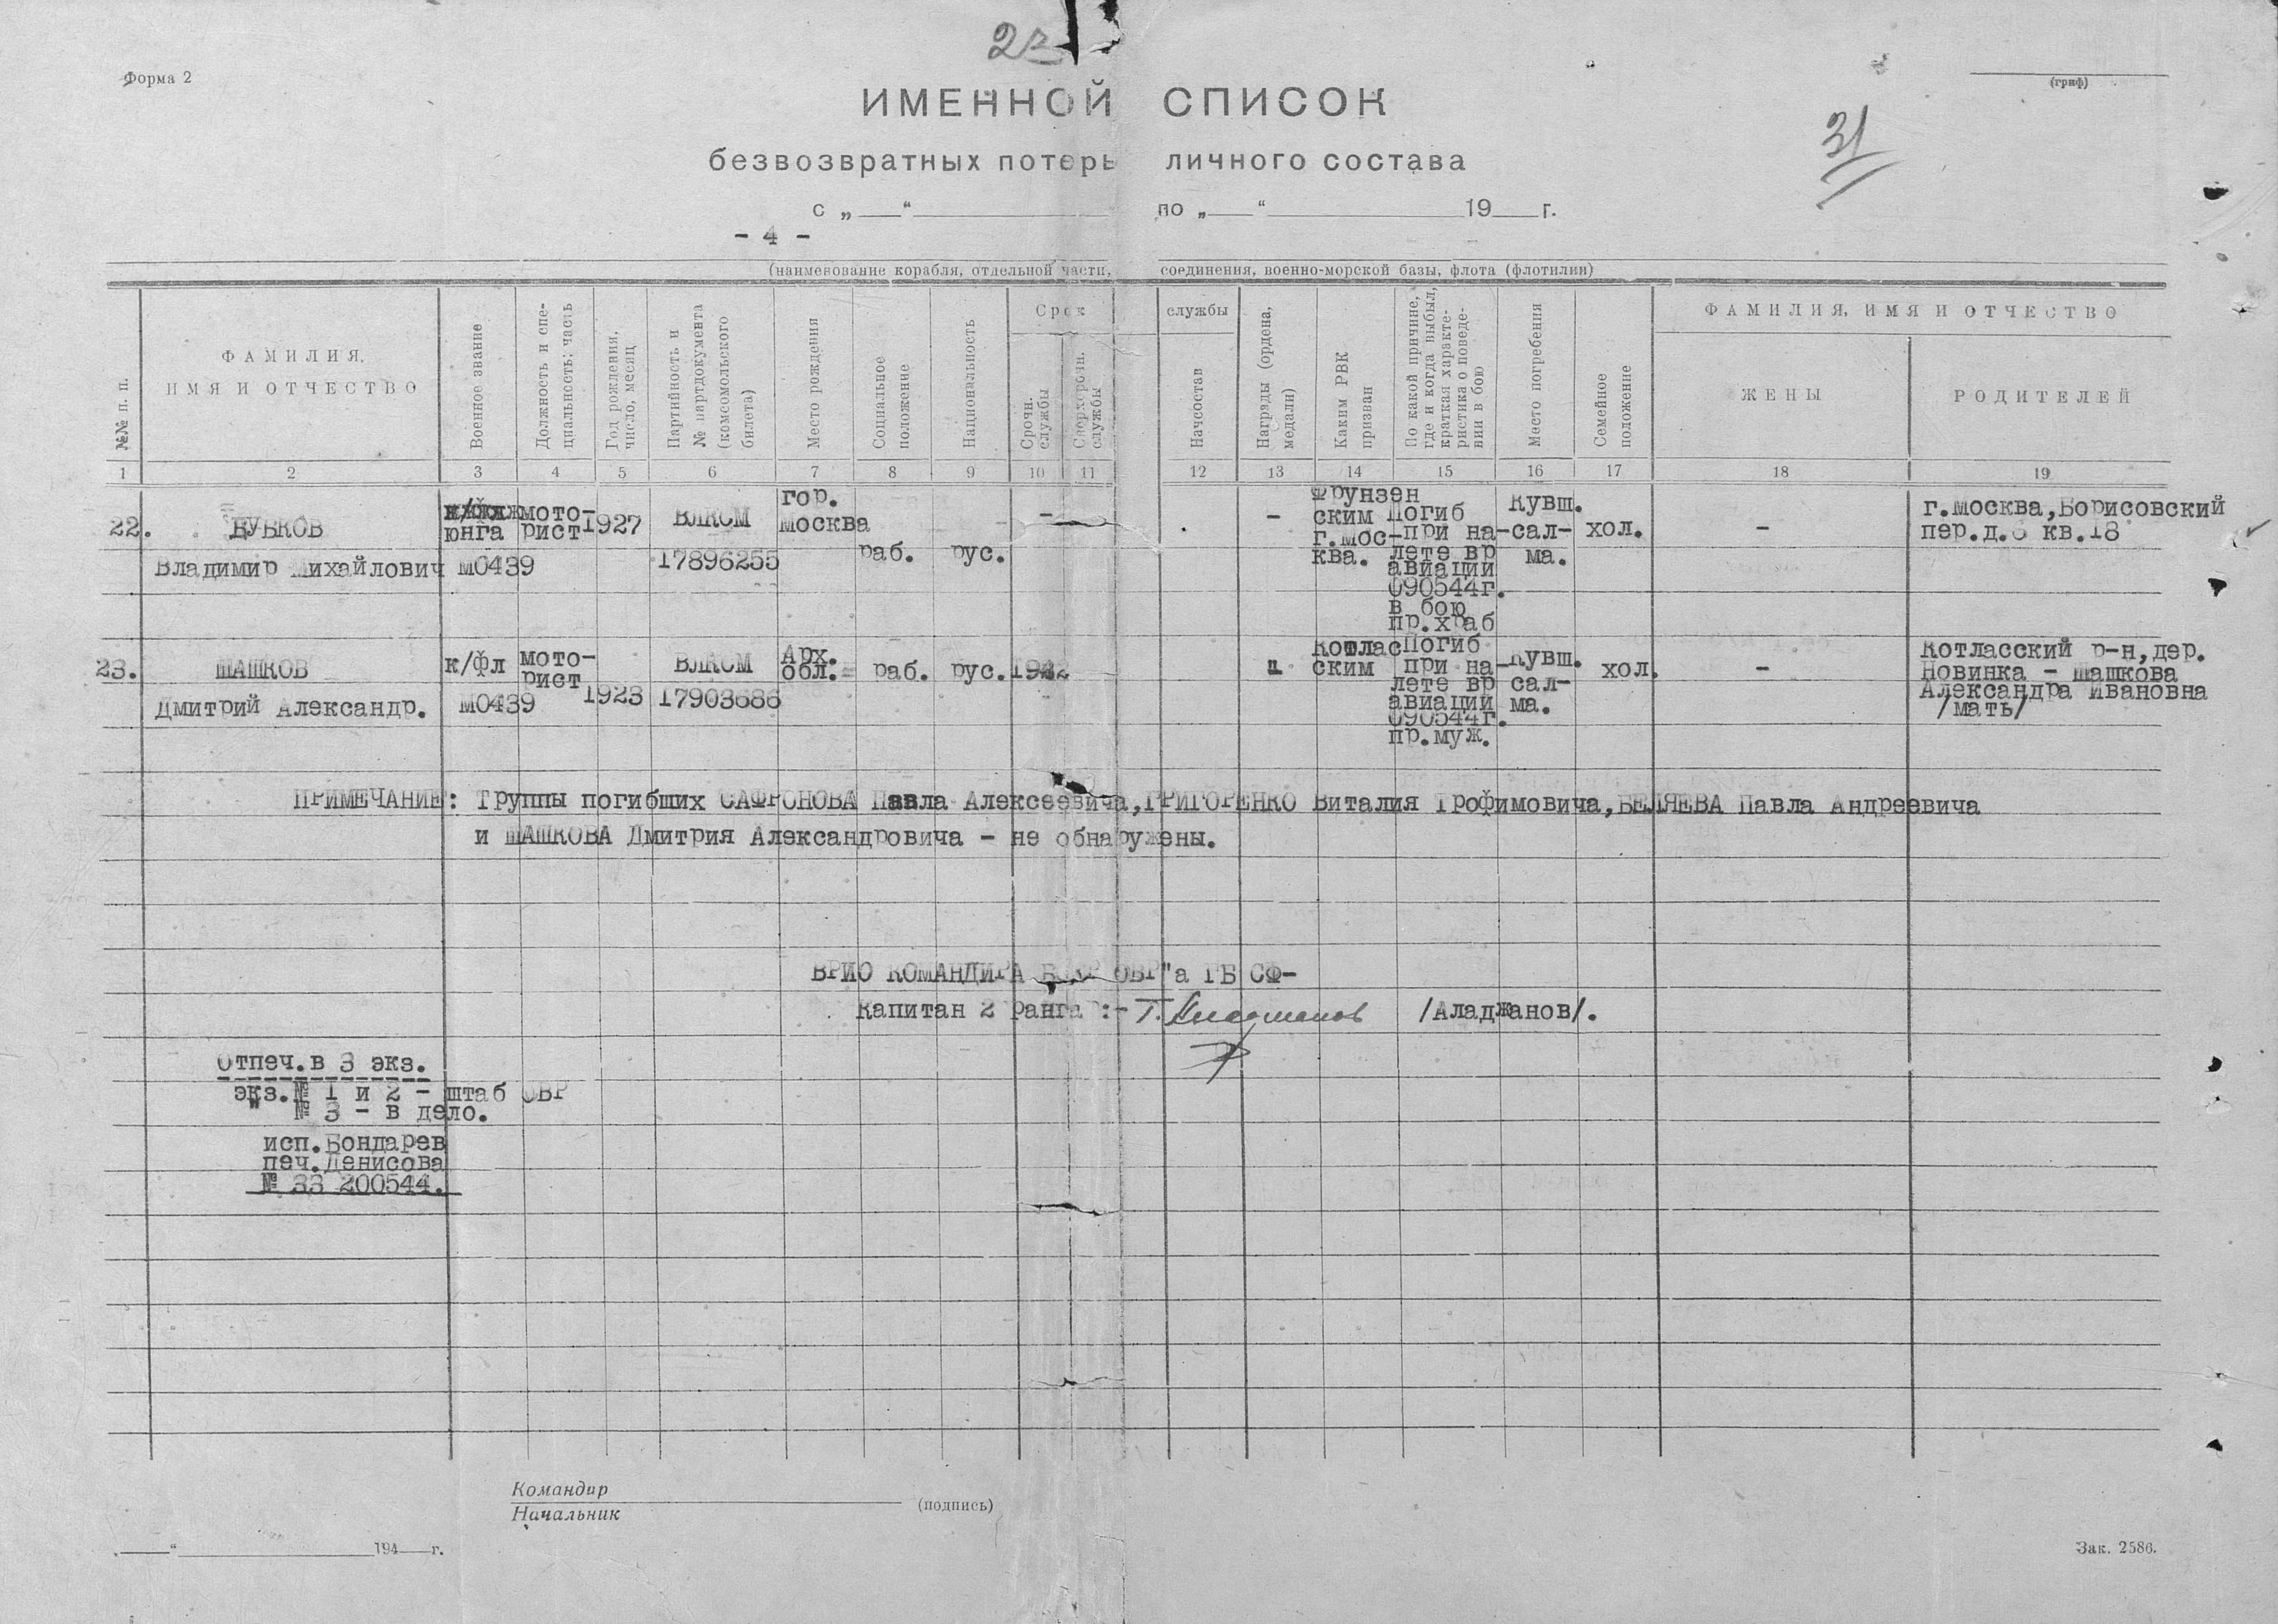 Форма 2
(гриф)
31
ИМЕННОЙ СПИСОК
безвозвратных потерь личного состава
с „ “ по „ “ 19 г.
- 4 -
(наименование корабля, отдельной части, соединения, военно-морской базы, флота (флотилии)
№№ п. п.
ФАМИЛИЯ,
ИМЯ И ОТЧЕСТВО
Военное звание
Должность и спе-
циальность; часть
Год рождения,
число, месяц
Партийность и
№ партдокумента
(комсомольского
билета)
Место рождения
Социальное
положение
Национальность
Срок службы
Срочн.
службы
Сверхсрочн.
службы
Начсостав
Награды (ордена,
медали)
Каким РВК
призван
По какой причине,
где и когда выбыл,
краткая характе-
ристика о поведе-
нии в бою
Место погребения
Семейное
положение
ФАМИЛИЯ, ИМЯ И ОТЧЕСТВО
ЖЕНЫ
РОДИТЕЛЕЙ
1 2 3 4 5 6 7 8 9 10 11 12 13 14 15 16 17 18 19
22.
Владимир Михайлович
юнга
МО439
мото-
рист
1927
ВЛКСМ
17896255
гор.
Москва
раб.
рус.
-
-
Фрунзен
ским
г.Мос-
ква.
Погиб
при на-
лете вр
авиации
090544г.
в бою
пр.храб
Кувш.
сал-
ма.
хол.
-
г.Москва,Борисовский
пер.д. кв.18
23.
ШАШКОВ
Дмитрий Александр.
к/фл
МО439
мото-
рист
1923
ВЛКСМ
17903686
Арх.
обл.
раб.
рус.
1942
Котлас
ским
Погиб
при на-
лете вр
авиации
090544г.
пр.муж.
Кувш.
сал-
ма.
хол.
-
Котласский р-н,дер.
Новинка - Шашкова
Александра Ивановна
/мать/
ПРИМЕЧАНИЕ: Труппы погибших САФРОНОВА Павла Алексеевича,ГРИГОРЕНКО Виталия Трофимовича,БЕЛЯЕВА Павла Андреевича
и ШАШКОВА Дмитрия Александровича - не обнаружены.
ВРИО КОМАНДИРА ОВР"а ГБ СФ-
Капитан 2 ранга :- /Аладжанов/.
Отпеч.в 3 экз.
экз.№ 1 и 2 - штаб ОВР
" № 3 - в дело.
исп.Бондарев
печ.Денисова
№ 33 200544.
Командир
Начальник
(подпись)
“ 194 г.
Зак. 2586.